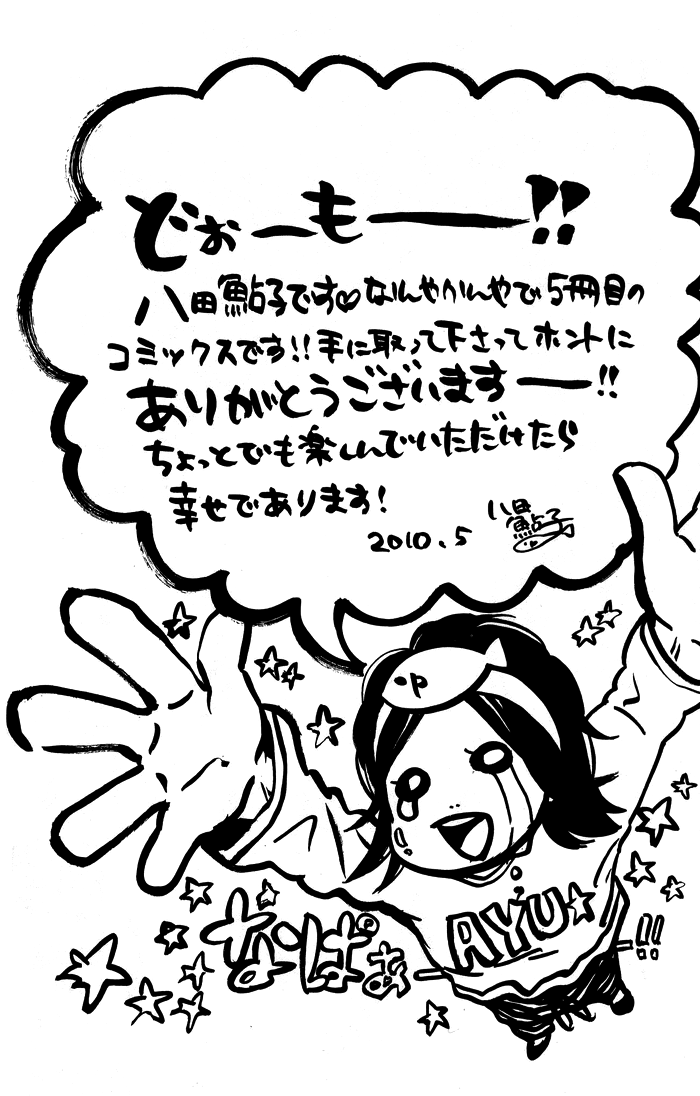 どぉーもー!!
八田鮎子です♡なんやかんやで5冊目の
コミックスです!!手に取って下さってホントに
ありがとうございますー!!
ちょっとでも楽しんでいただけたら
幸せであります!
2010.5
八田鮎子
P
AYU☆
なっぱぁー!!